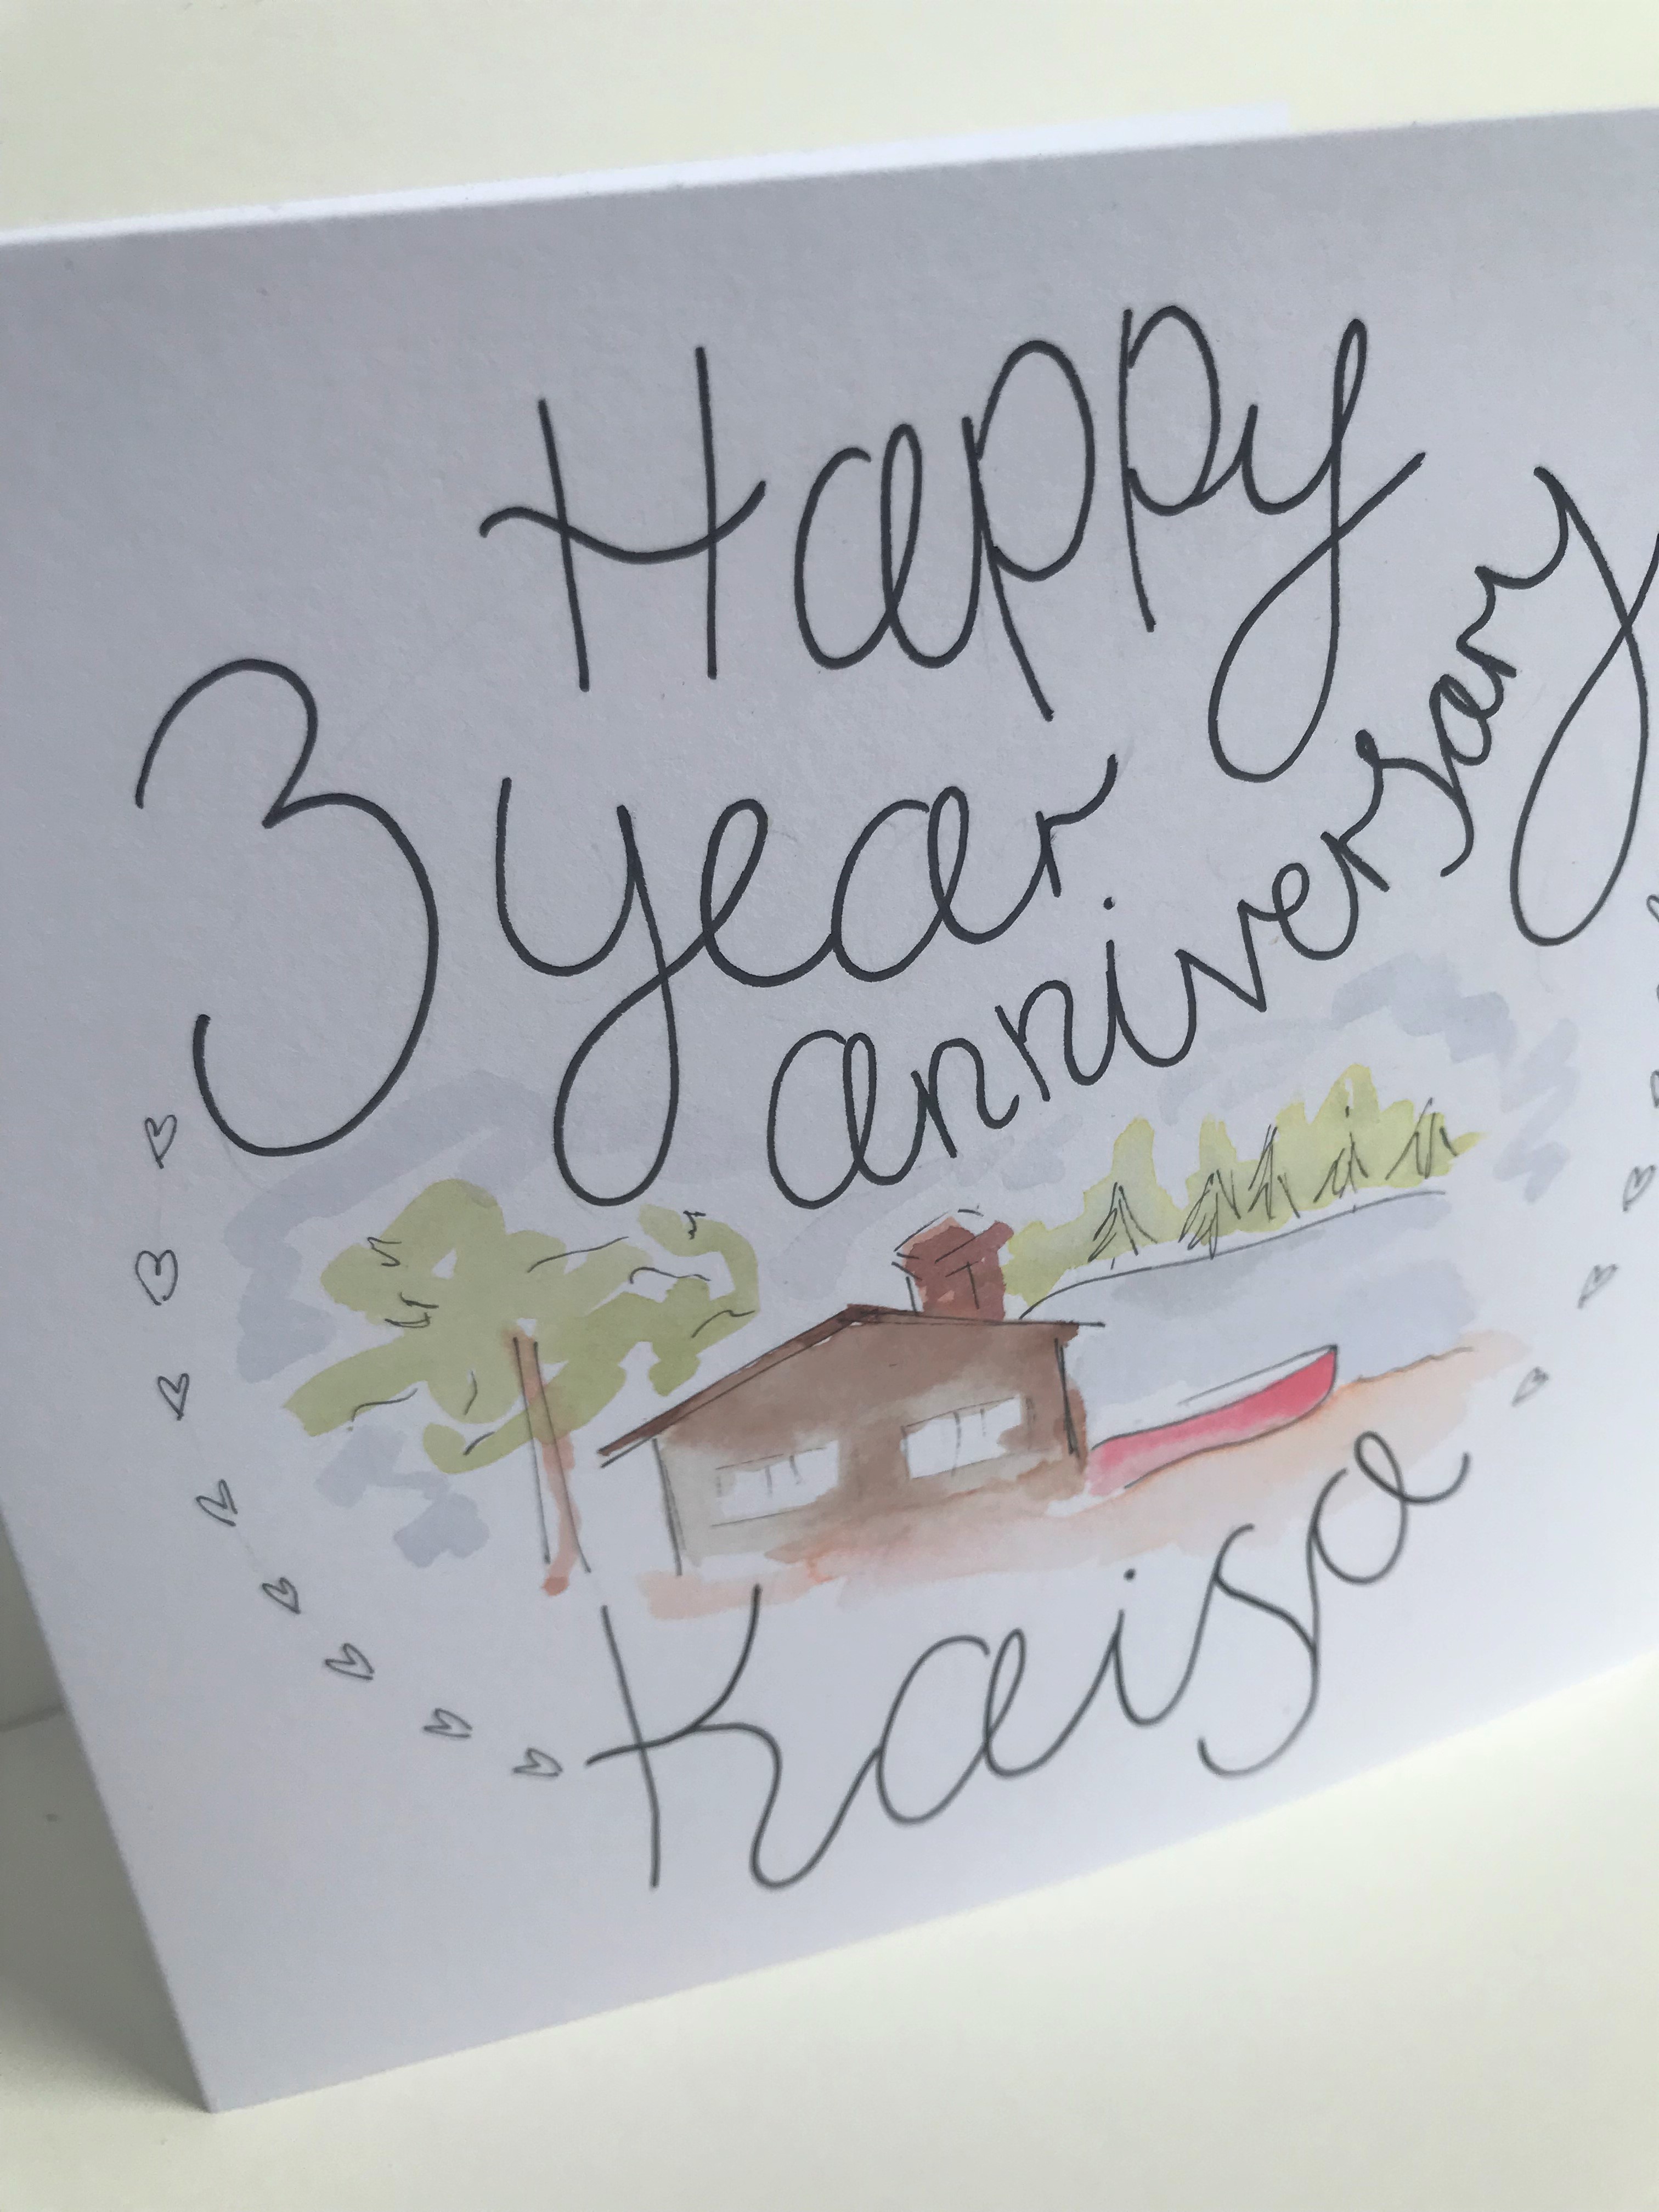 Happy
3 year
anniversary
Kaisa